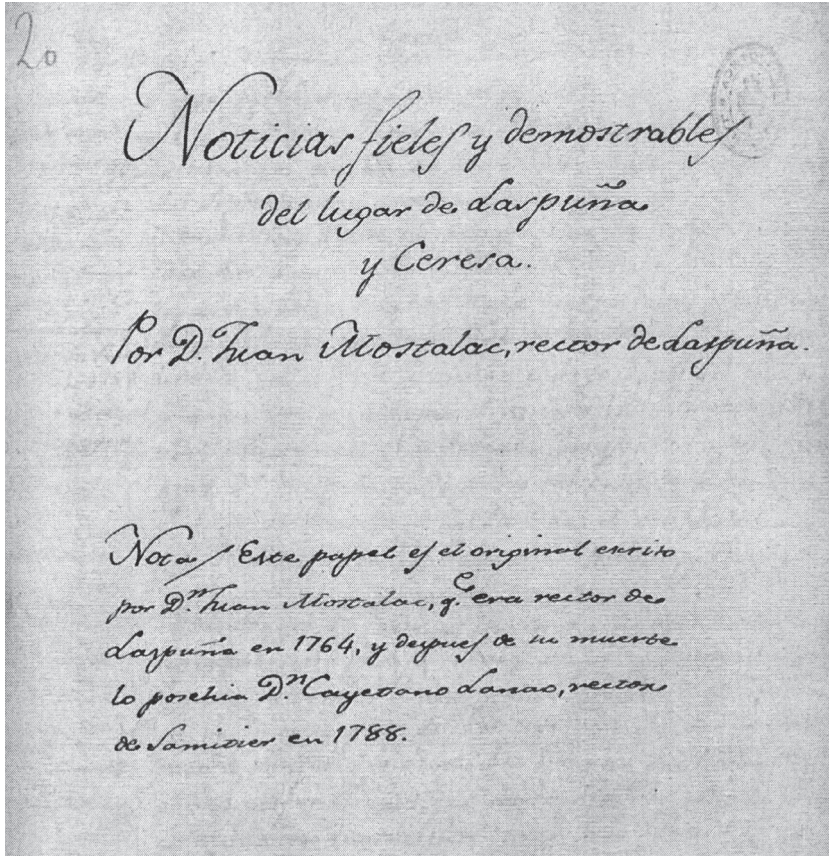 20
Noticias fieles y demostrables
del lugar de Laspuña
y Ceresa.
Por D. Juan Mostalac, rector de Laspuña.
Nota/ Este papel es el original escrito
por Dn. Juan Mostalac, qe. era rector de
Laspuña en 1764, y despues de su muerte
lo posehia Dn. Cayetano Lanao, rector
de Samitier en 1788.